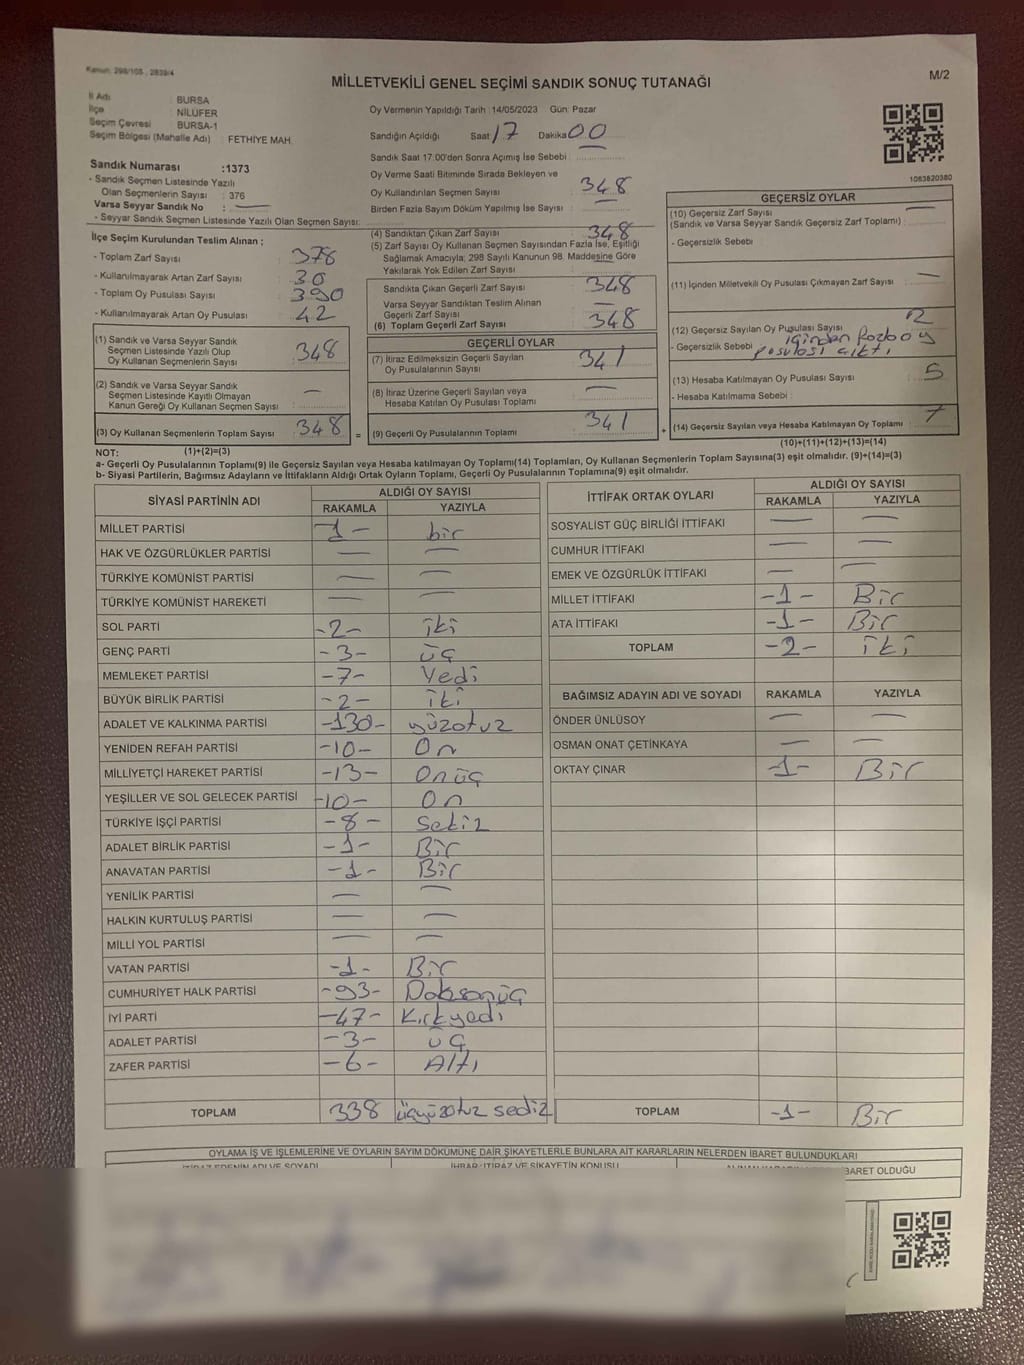 Kanun: 298/105 , 2839/4
MİLLETVEKİLİ GENEL SEÇİMİ SANDIK SONUÇ TUTANAĞI
M/2
İl Adı : BURSA
İlçe : NİLÜFER
Seçim Çevresi : BURSA-1
Seçim Bölgesi (Mahalle Adı) : FETHİYE MAH.
Oy Vermenin Yapıldığı Tarih : 14/05/2023 Gün: Pazar
Sandığın Açıldığı Saat 17 Dakika 00
Sandık Saat 17:00'den Sonra Açımış İse Sebebi :
Oy Verme Saati Bitiminde Sırada Bekleyen ve
Oy Kullandırılan Seçmen Sayısı : 348
Birden Fazla Sayım Döküm Yapılmış İse Sayısı : —
1083820380
Sandık Numarası :1373
- Sandık Seçmen Listesinde Yazılı
Olan Seçmenlerin Sayısı : 376
Varsa Seyyar Sandık No : —
- Seyyar Sandık Seçmen Listesinde Yazılı Olan Seçmen Sayısı:
İlçe Seçim Kurulundan Teslim Alınan ;
- Toplam Zarf Sayısı : 378
- Kullanılmayarak Artan Zarf Sayısı : 30
- Toplam Oy Pusulası Sayısı : 390
- Kullanılmayarak Artan Oy Pusulası : 42
(1) Sandık ve Varsa Seyyar Sandık
Seçmen Listesinde Yazılı Olup
Oy Kullanan Seçmenlerin Sayısı : 348
(2) Sandık ve Varsa Seyyar Sandık
Seçmen Listesinde Kayıtlı Olmayan
Kanun Gereği Oy Kullanan Seçmen Sayısı : —
(3) Oy Kullanan Seçmenlerin Toplam Sayısı : 348 =
(4) Sandıktan Çıkan Zarf Sayısı : 348
(5) Zarf Sayısı Oy Kullanan Seçmen Sayısından Fazla İse, Eşitliği
Sağlamak Amacıyla; 298 Sayılı Kanunun 98. Maddesine Göre
Yakılarak Yok Edilen Zarf Sayısı : —
Sandıkta Çıkan Geçerli Zarf Sayısı : 348
Varsa Seyyar Sandıktan Teslim Alınan
Geçerli Zarf Sayısı : —
(6) Toplam Geçerli Zarf Sayısı : 348
GEÇERLİ OYLAR
(7) İtiraz Edilmeksizin Geçerli Sayılan
Oy Pusulalarının Sayısı : 341
(8) İtiraz Üzerine Geçerli Sayılan veya
Hesaba Katılan Oy Pusulası Toplamı : —
(9) Geçerli Oy Pusulalarının Toplamı : 341 +
GEÇERSİZ OYLAR
(10) Geçersiz Zarf Sayısı
(Sandık ve Varsa Seyyar Sandık Geçersiz Zarf Toplamı) : —
- Geçersizlik Sebebi :
(11) İçinden Milletvekili Oy Pusulası Çıkmayan Zarf Sayısı : —
(12) Geçersiz Sayılan Oy Pusulası Sayısı : 2
- Geçersizlik Sebebi : içinden
pusulası çıktı
(13) Hesaba Katılmayan Oy Pusulası Sayısı : 5
- Hesaba Katılmama Sebebi :
(14) Geçersiz Sayılan veya Hesaba Katılmayan Oy Toplamı : 7
NOT: (1)+(2)=(3)
(10)+(11)+(12)+(13)=(14)
a- Geçerli Oy Pusulalarının Toplamı(9) ile Geçersiz Sayılan veya Hesaba katılmayan Oy Toplamı(14) Toplamları, Oy Kullanan Seçmenlerin Toplam Sayısına(3) eşit olmalıdır. (9)+(14)=(3)
b- Siyasi Partilerin, Bağımsız Adayların ve İttifakların Aldığı Ortak Oyların Toplamı, Geçerli Oy Pusulalarının Toplamına(9) eşit olmalıdır.
SİYASİ PARTİNİN ADI ALDIĞI OY SAYISI
RAKAMLA YAZIYLA
MİLLET PARTİSİ -1- bir
HAK VE ÖZGÜRLÜKLER PARTİSİ — —
TÜRKİYE KOMÜNİST PARTİSİ — —
TÜRKİYE KOMÜNİST HAREKETİ — —
SOL PARTİ -2- iki
GENÇ PARTİ -3- üç
MEMLEKET PARTİSİ -7- Yedi
BÜYÜK BİRLİK PARTİSİ -2- iki
ADALET VE KALKINMA PARTİSİ -130- yüzotuz
YENİDEN REFAH PARTİSİ -10- On
MİLLİYETÇİ HAREKET PARTİSİ -13- Onüç
YEŞİLLER VE SOL GELECEK PARTİSİ -10- On
TÜRKİYE İŞÇİ PARTİSİ -8- Sekiz
ADALET BİRLİK PARTİSİ -1- Bir
ANAVATAN PARTİSİ -1- Bir
YENİLİK PARTİSİ — —
HALKIN KURTULUŞ PARTİSİ — —
MİLLİ YOL PARTİSİ — —
VATAN PARTİSİ -1- Bir
CUMHURİYET HALK PARTİSİ -93- Doksanüç
İYİ PARTİ -47- Kırkyedi
ADALET PARTİSİ -3- üç
ZAFER PARTİSİ -6- Altı
TOPLAM 338 üçyüzotuz sekiz
İTTİFAK ORTAK OYLARI ALDIĞI OY SAYISI
RAKAMLA YAZIYLA
SOSYALİST GÜÇ BİRLİĞİ İTTİFAKI — —
CUMHUR İTTİFAKI — —
EMEK VE ÖZGÜRLÜK İTTİFAKI — —
MİLLET İTTİFAKI -1- Bir
ATA İTTİFAKI -1- Bir
TOPLAM -2- iki
BAĞIMSIZ ADAYIN ADI VE SOYADI RAKAMLA YAZIYLA
ÖNDER ÜNLÜSOY — —
OSMAN ONAT ÇETİNKAYA — —
OKTAY ÇINAR -1- Bir
TOPLAM -1- Bir
OYLAMA İŞ VE İŞLEMLERİNE VE OYLARIN SAYIM DÖKÜMÜNE DAİR ŞİKAYETLERLE BUNLARA AİT KARARLARIN NELERDEN İBARET BULUNDUKLARI
İTİRAZ EDENİN ADI VE SOYADI İHBAR, İTİRAZ VE ŞİKAYETİN KONUSU
İBARET OLDUĞU